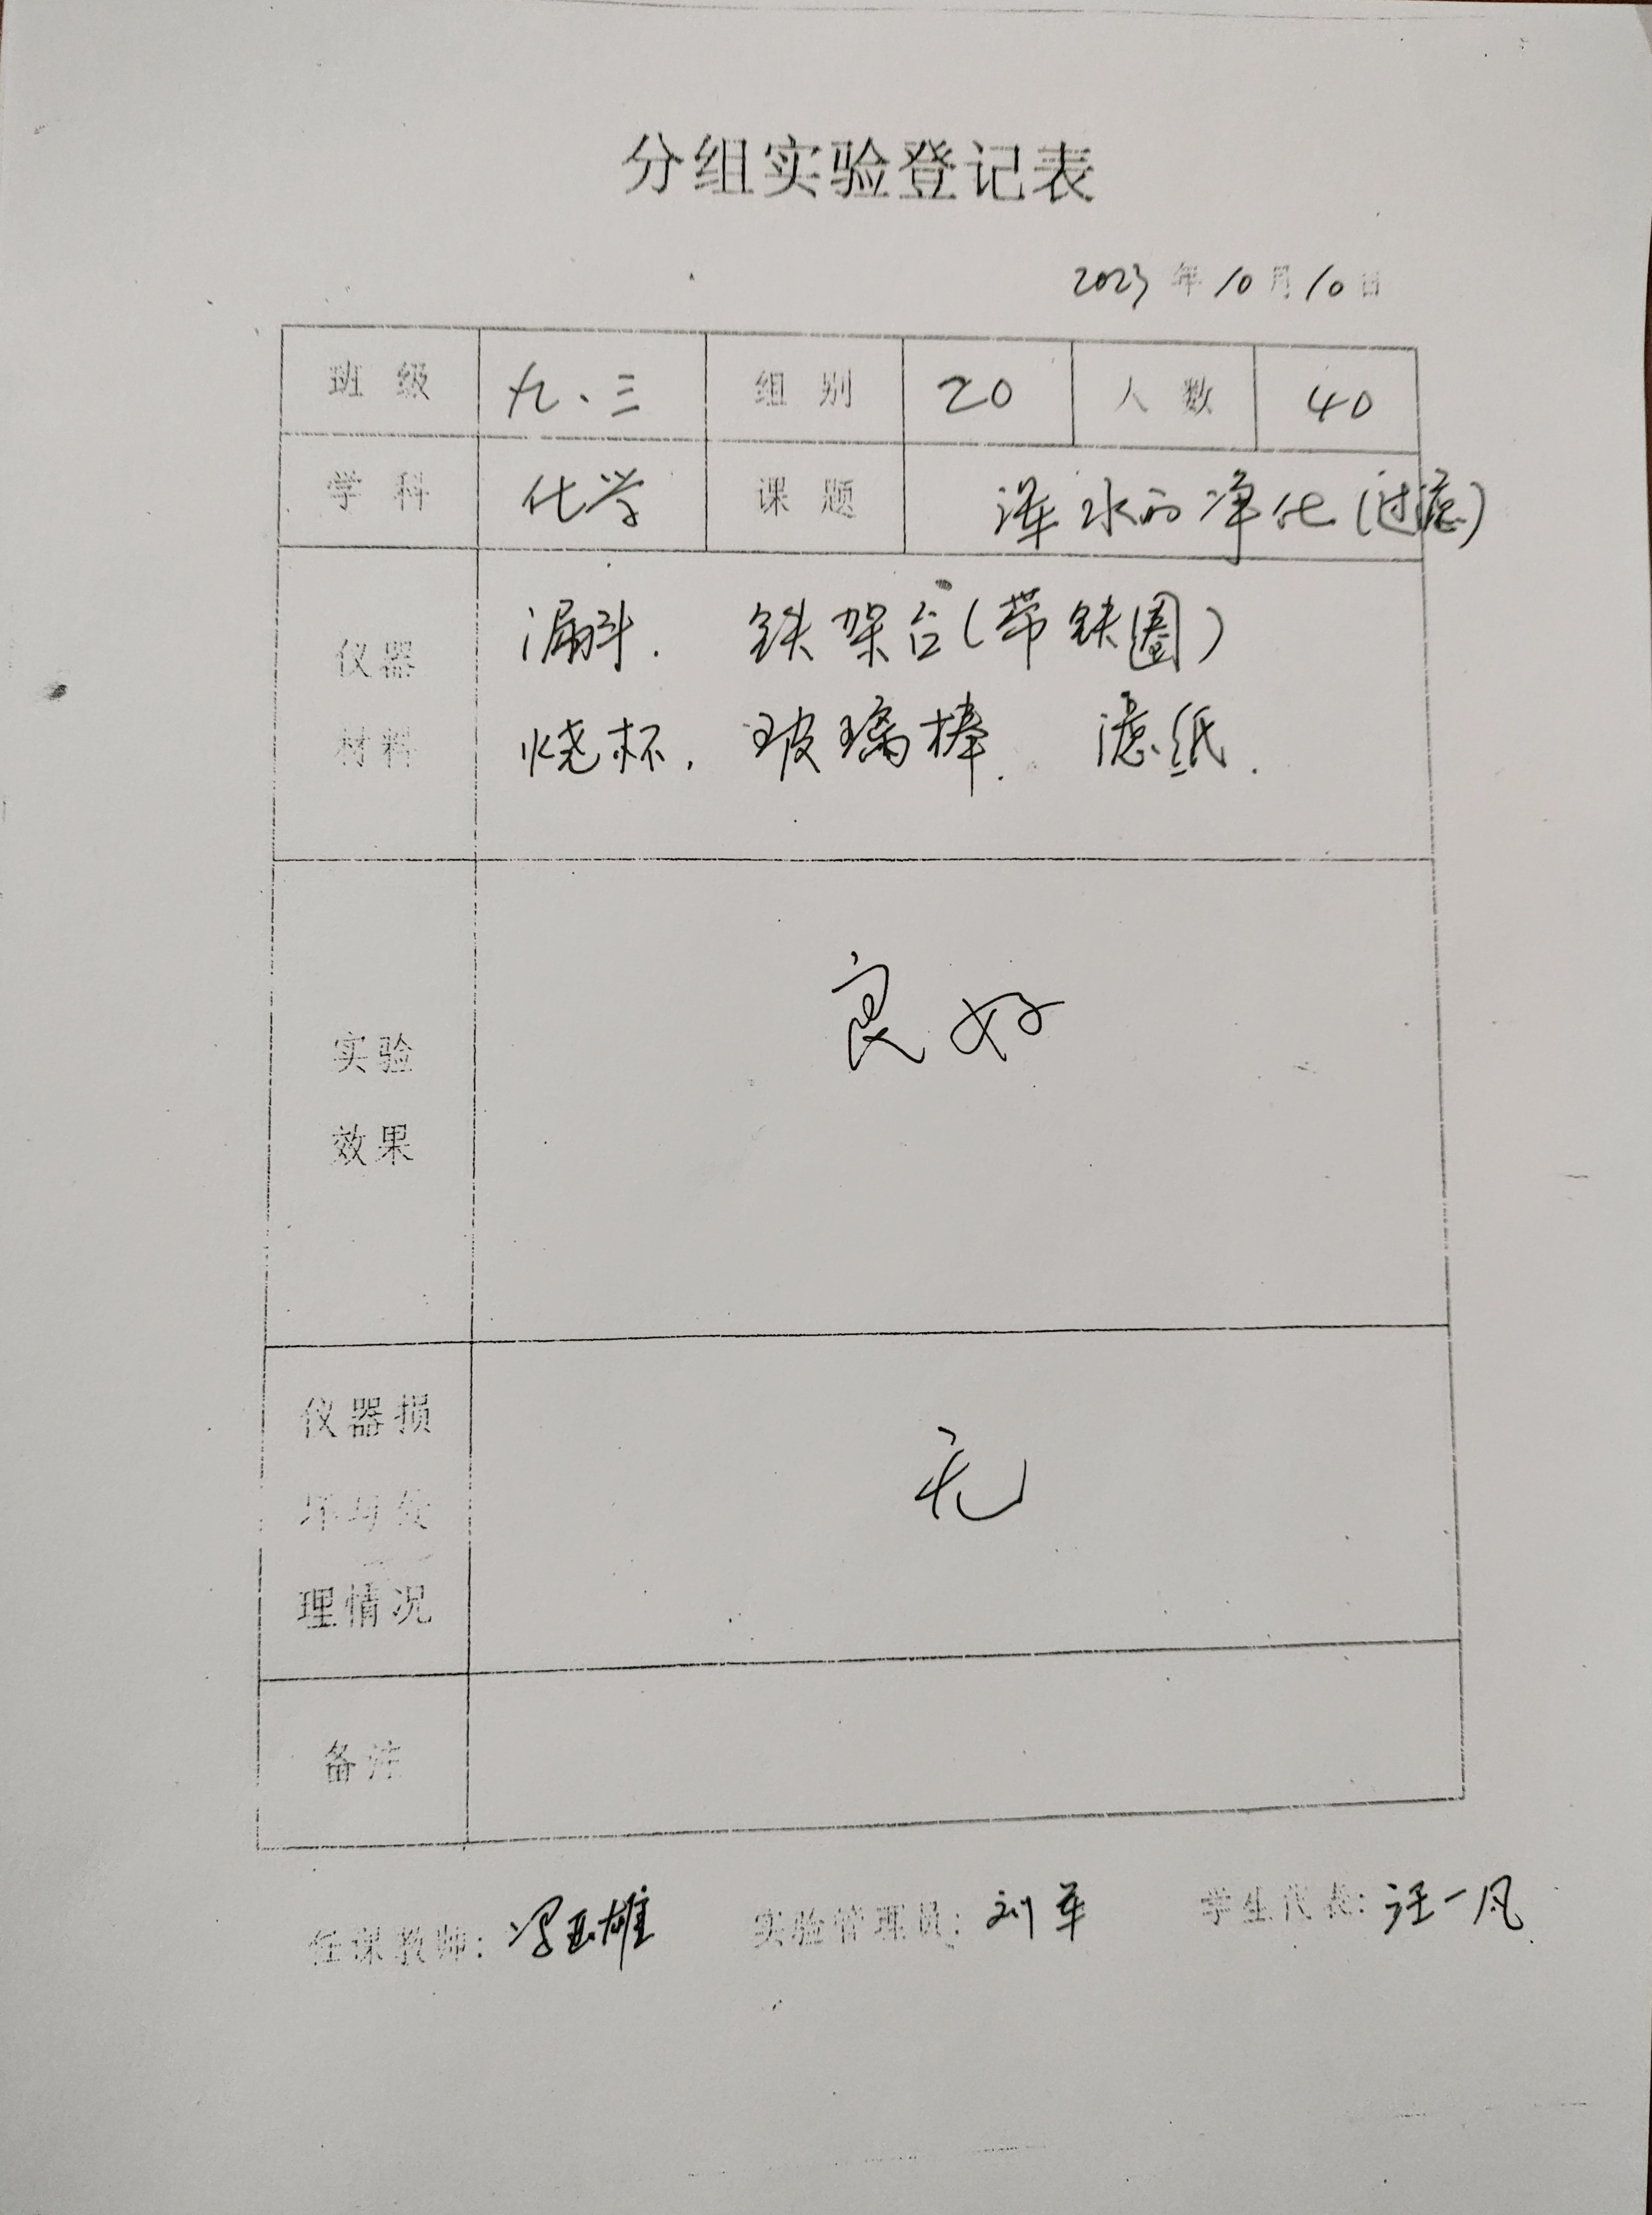 分组实验登记表
2023年10月10日
班级 九、三 组别 20 人数 40
学科 化学 课题 浑水的净化(过滤)
仪器材料
漏斗. 铁架台(带铁圈)
烧杯. 玻璃棒. 滤纸.
实验效果
良好
仪器损坏与处理情况
无
备注
任课教师: 冯亚雄 实验管理员: 刘军 学生代表: 汪一凡